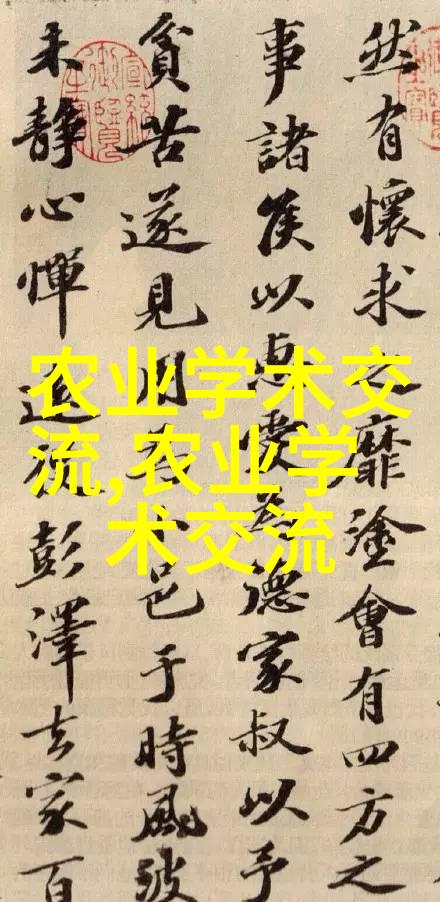 然有懷求之靡塗會有四方之
事諸侯以惠愛為德家叔以予
貧苦遂見用為小邑于時風波
未靜心憚遠役彭澤去家百
农业学术交
流,农业学
术交流